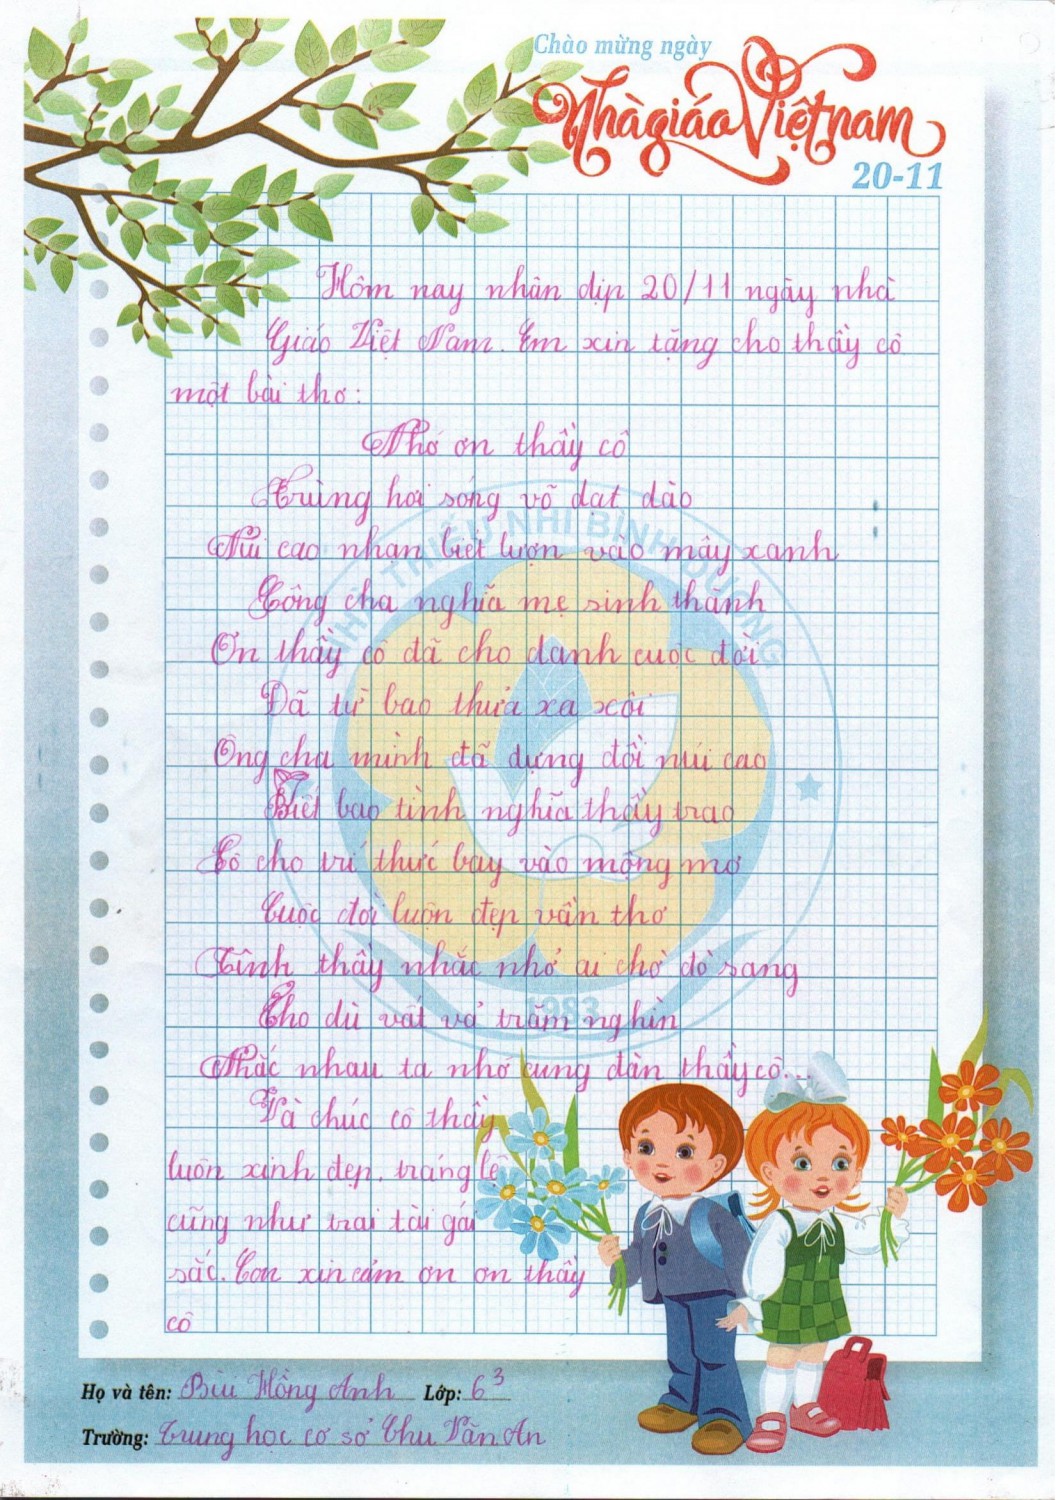 Chào mừng ngày
Nhà giáo Việt nam
20-11
Hôm nay nhân dịp 20/11 ngày nhà
Giáo Việt Nam. Em xin tặng cho thầy cô
một bài thơ:
Nhớ ơn thầy cô
Trùng hơi sóng vỗ dạt dào
Núi cao nhạn biết lượn vào mây xanh
Công cha nghĩa mẹ sinh thành
Ơn thầy cô đã cho danh cuộc đời
Đã từ bao thưả xa xôi
Ông cha mình đã dựng đồi núi cao
Biết bao tình nghĩa thầy trao
Cô cho trí thức bay vào mộng mơ
Cuộc đời luôn đẹp vần thơ
Tình thầy nhắc nhở ai chờ đò sang
Cho dù vất vả trăm nghìn
Nhắc nhau ta nhớ cung đàn thầy cô...
Và chúc cô thầy
luôn xinh đẹp, tráng lệ
cũng như trai tài gái
sắc. Con xin cám ơn ơn thầy
cô
NHÀ THIẾU NHI BÌNH DƯƠNG
1983
Họ và tên: Bùi Hồng Anh Lớp: 6³
Trường: Trung học cơ sở Chu Văn An